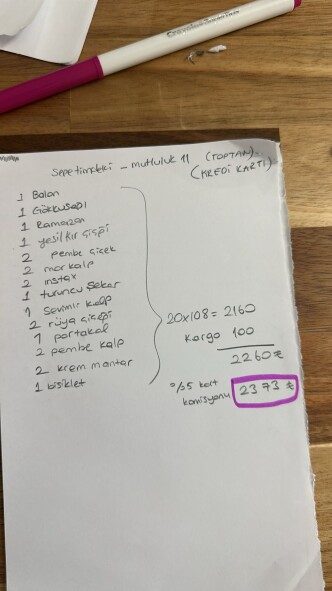 Sepetimdeki - mutluluk 11 (TOPTAN)
(KREDİ KARTI)
1 Balon
1 Gökkuşağı
1 Ramazan
1 yeşil kır çiçeği
2 pembe çiçek
2 mor kalp
2 instax
1 turuncu şeker
1 Sevimli kalp
2 rüya çiçeği
1 portakal
2 pembe kalp
2 krem mantar
1 bisiklet
20x108 = 2160
Kargo 100
2260₺
%5 kart
komisyonu 2373 ₺